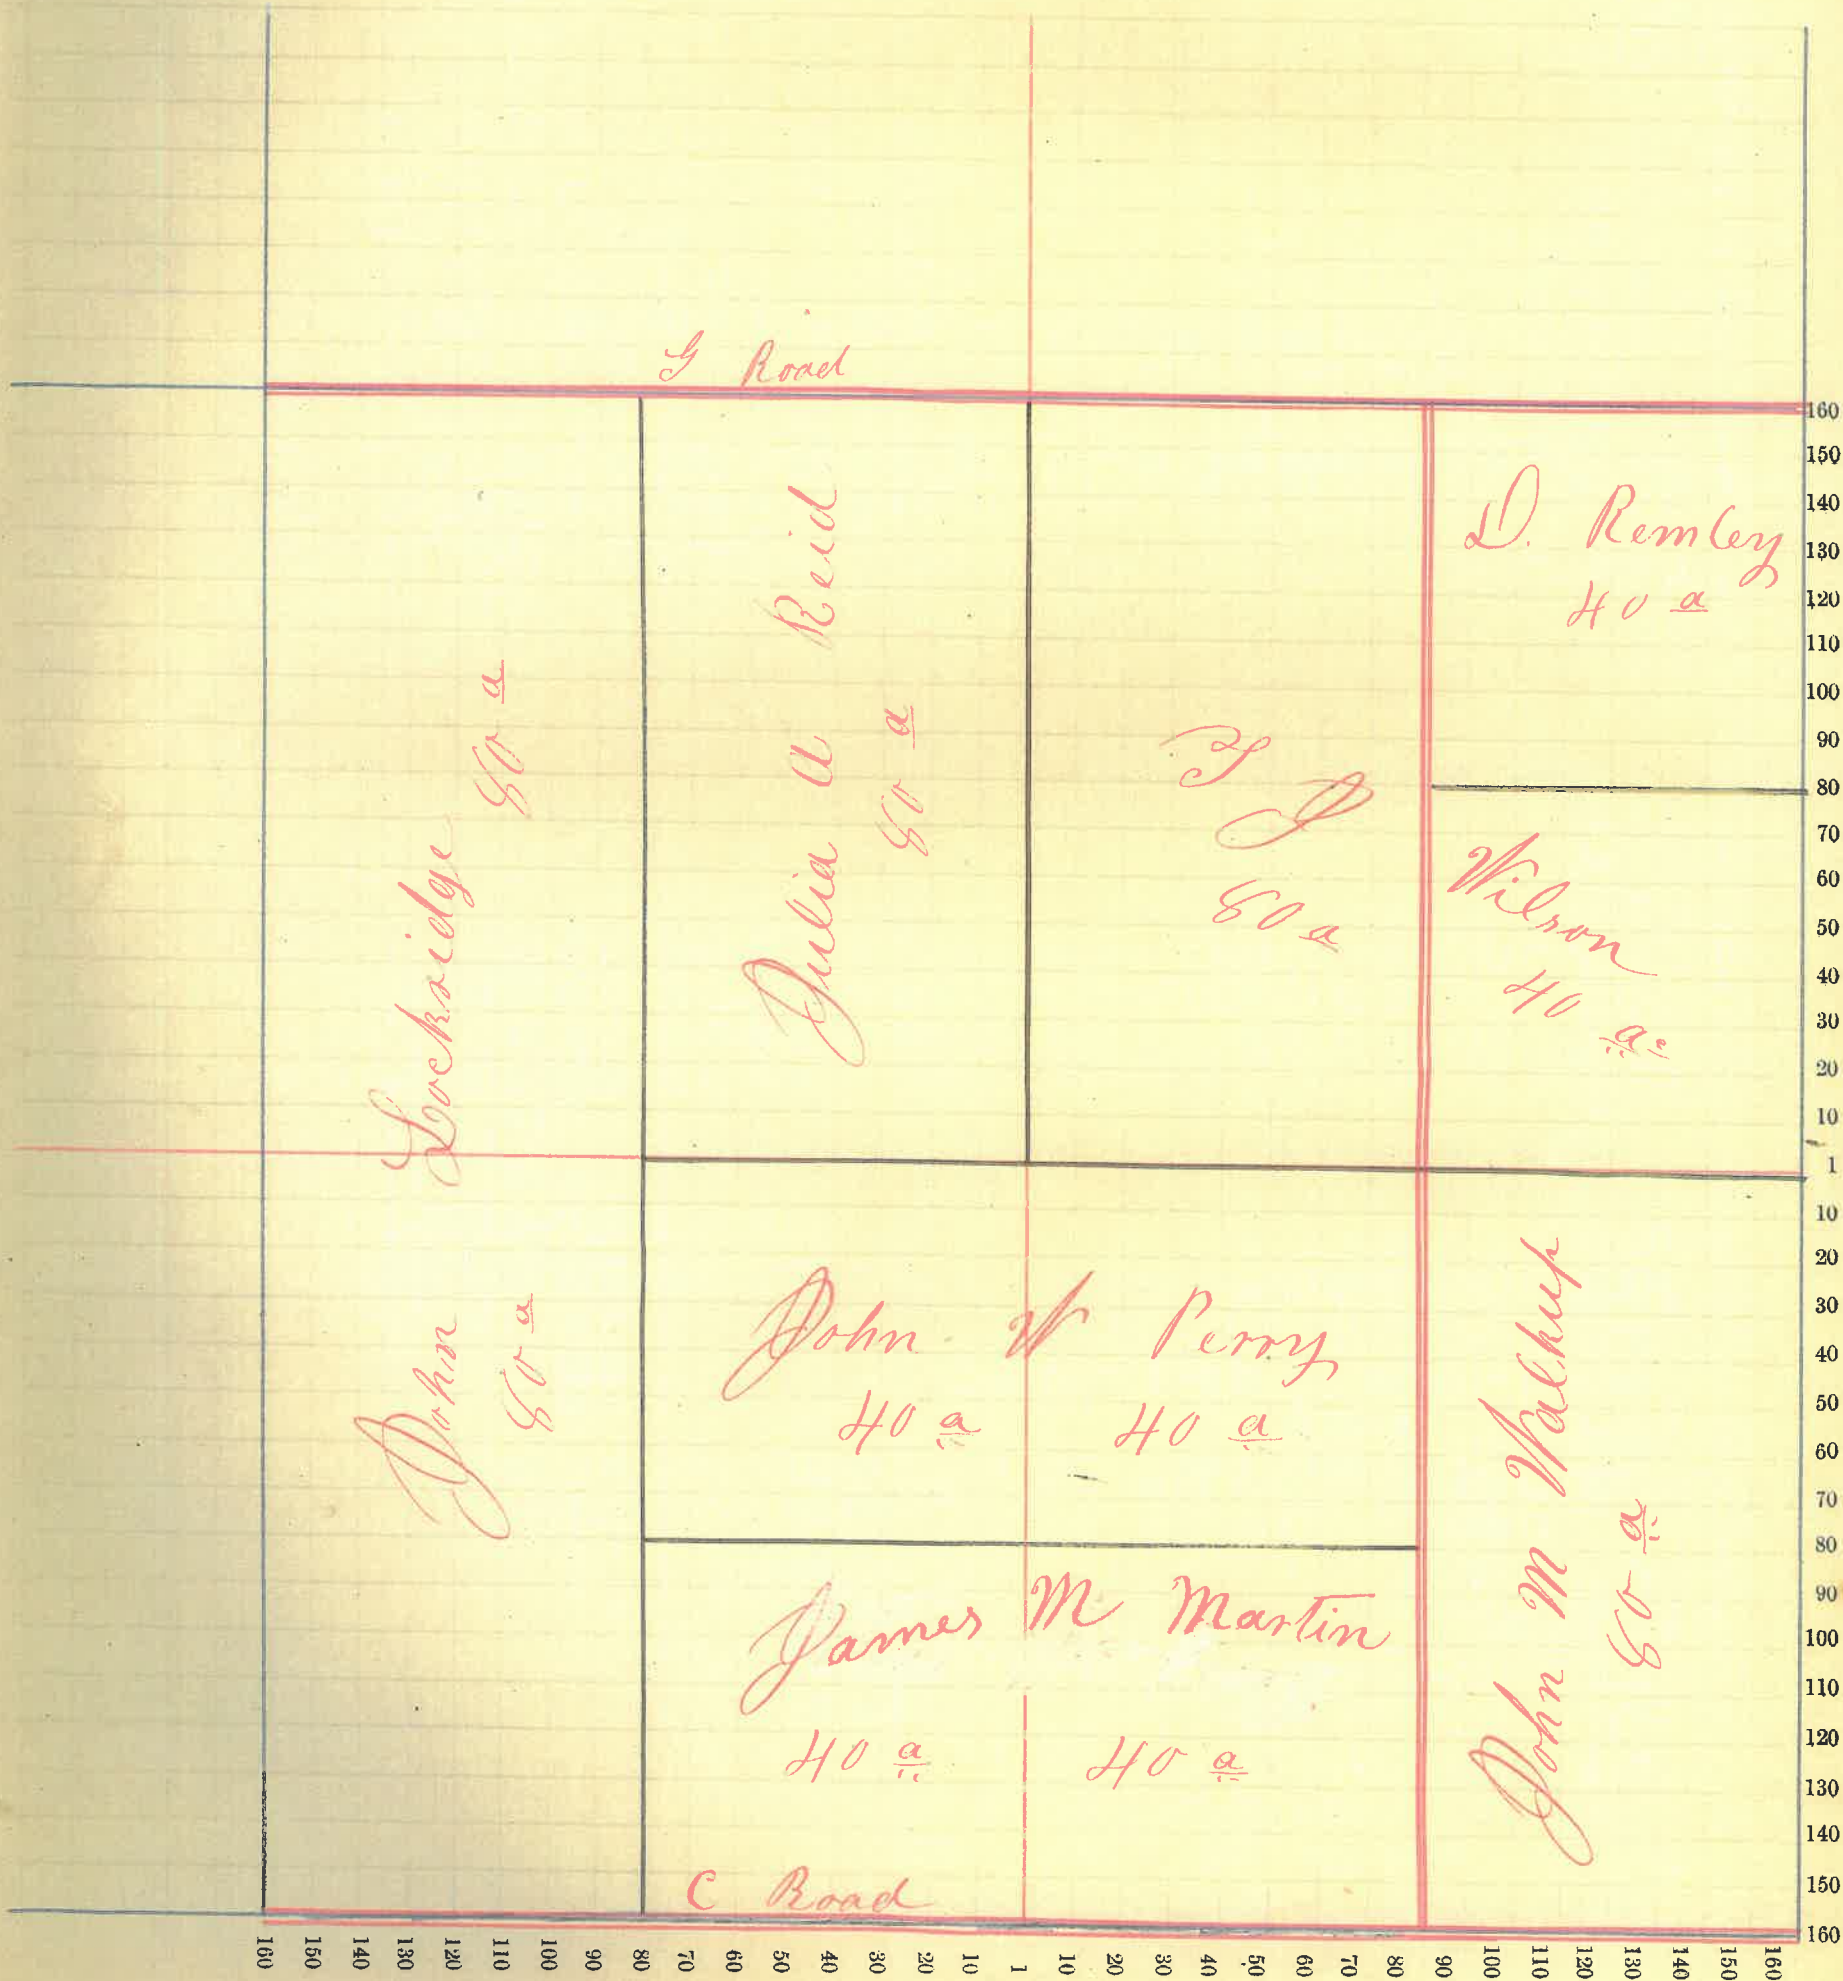 G Road
John Lockridge
80 a
80 a
Julia A Reid
80 a
80 a
D. Remley
40 a
Wilson
40 a
John W Perry
40 a 40 a
James M Martin
40 a 40 a
John M Walkup
80 a
C Road
160
150
140
130
120
110
100
90
80
70
60
50
40
30
20
10
1
10
20
30
40
50
60
70
80
90
100
110
120
130
140
150
160
160 150 140 130 120 110 100 90 80 70 60 50 40 30 20 10 1 10 20 30 40 50 60 70 80 90 100 110 120 130 140 150 160